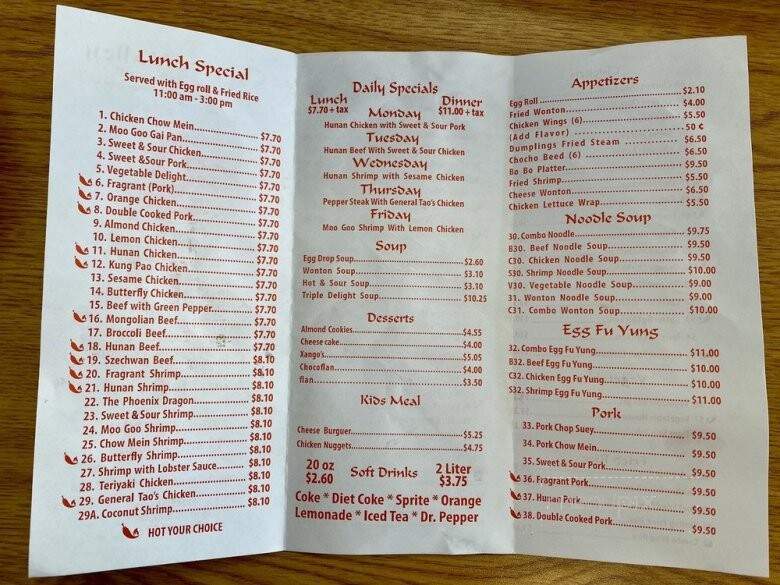 Lunch Special
Served with Egg roll & Fried Rice
11:00 am - 3:00 pm
1. Chicken Chow Mein..............$7.70
2. Moo Goo Gai Pan..............$7.70
3. Sweet & Sour Chicken..............$7.70
4. Sweet &Sour Pork..............$7.70
5. Vegetable Delight..............$7.70
6. Fragrant (Pork)..............$7.70
7. Orange Chicken..............$7.70
8. Double Cooked Pork..............$7.70
9. Almond Chicken..............$7.70
10. Lemon Chicken..............$7.70
11. Hunan Chicken..............$7.70
12. Kung Pao Chicken..............$7.70
13. Sesame Chicken..............$7.70
14. Butterfly Chicken..............$7.70
15. Beef with Green Pepper..............$7.70
16. Mongolian Beef..............$7.70
17. Broccoli Beef..............$7.70
18. Hunan Beef..............$7.70
19. Szechwan Beef..............$8.10
20. Fragrant Shrimp..............$8.10
21. Hunan Shrimp..............$8.10
22. The Phoenix Dragon..............$8.10
23. Sweet & Sour Shrimp..............$8.10
24. Moo Goo Shrimp..............$8.10
25. Chow Mein Shrimp..............$8.10
26. Butterfly Shrimp..............$8.10
27. Shrimp with Lobster Sauce..............$8.10
28. Teriyaki Chicken..............$8.10
29. General Tao's Chicken..............$8.10
29A. Coconut Shrimp..............$8.10
HOT YOUR CHOICE
Daily Specials
Lunch Dinner
$7.70 + tax $11.00 + tax
Monday
Hunan Chicken with Sweet & Sour Pork
Tuesday
Hunan Beef With Sweet & Sour Chicken
Wednesday
Hunan Shrimp with Sesame Chicken
Thursday
Pepper Steak With General Tao's Chicken
Friday
Moo Goo Shrimp With Lemon Chicken
Soup
Egg Drop Soup..............$2.60
Wonton Soup..............$3.10
Hot & Sour Soup..............$3.10
Triple Delight Soup..............$10.25
Desserts
Almond Cookies..............$4.55
Cheese cake..............$4.00
Xango's..............$5.05
Chocoflan..............$4.00
flan..............$3.50
Kids Meal
Cheese Burguer..............$5.25
Chicken Nuggets..............$4.75
20 oz Soft Drinks 2 Liter
$2.60 $3.75
Coke * Diet Coke * Sprite * Orange
Lemonade * Iced Tea * Dr. Pepper
Appetizers
Egg Roll..............$2.10
Fried Wonton..............$4.00
Chicken Wings (6)..............$5.50
(Add Flavor)..............50 ¢
Dumplings Fried Steam..............$6.50
Chocho Beed (6)..............$6.50
Bo Bo Platter..............$9.50
Fried Shrimp..............$5.50
Cheese Wonton..............$6.50
Chicken Lettuce Wrap..............$5.50
Noodle Soup
30. Combo Noodle..............$9.75
B30. Beef Noodle Soup..............$9.50
C30. Chicken Noodle Soup..............$9.50
S30. Shrimp Noodle Soup..............$10.00
V30. Vegetable Noodle Soup..............$9.00
31. Wonton Noodle Soup..............$9.00
C31. Combo Wonton Soup..............$10.00
Egg Fu Yung
32. Combo Egg Fu Yung..............$11.00
B32. Beef Egg Fu Yung..............$10.00
C32. Chicken Egg Fu Yung..............$10.00
S32. Shrimp Egg Fu Yung..............$11.00
Pork
33. Pork Chop Suey..............$9.50
34. Pork Chow Mein..............$9.50
35. Sweet & Sour Pork..............$9.50
36. Fragrant Pork..............$9.50
37. Hunan Pork..............$9.50
38. Double Cooked Pork..............$9.50